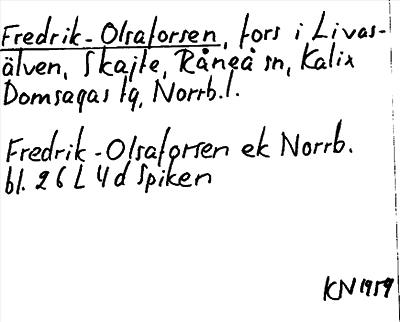 Fredrik-Olsaforsen, fors i Livas-
älven, Skajte, Råneå sn, Kalix
Domsagas tg, Norrb.l.
Fredrik-Olsaforsen ek Norrb.
bl. 26 L 4d Spiken
KN 1959